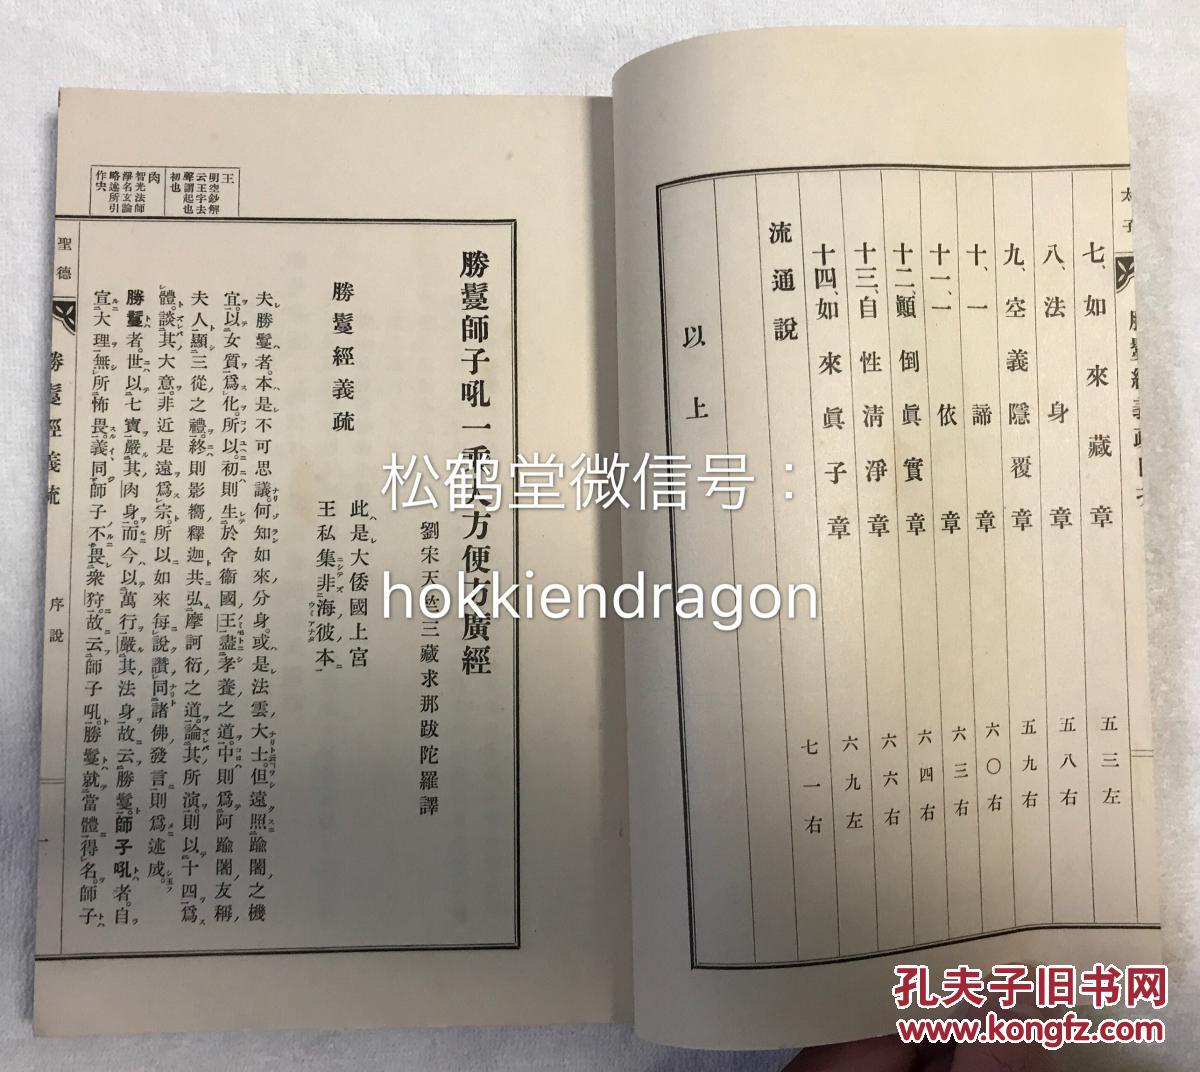 太子
勝鬘經義疏目次
七、如來藏章 五三左
八、法身章 五八右
九、空義隱覆章 五九右
十、一諦章 六〇右
十一、一依章 六三右
十二、顚倒眞實章 六四右
十三、自性淸淨章 六六右
十四、如來眞子章 六九左
流通說 七一右
以上
勝鬘師子吼一乘大方便方廣經
劉宋天竺三藏求那跋陀羅譯
勝鬘經義疏
此是大倭國上宮
王私集非海彼本
夫勝鬘者。本是不可思議。何知如來分身。或是法雲大士。但遠照踰闍之機
宜。以女質爲化。所以初則生於舍衞國王。盡孝養之道。中則爲阿踰闍友稱
夫人。顯三從之禮。終則影嚮釋迦共弘摩訶衍之道。論其所演。則以十四爲
體。談其大意。非近是遠爲宗。所以如來每說讚同諸佛發言則爲述成。
勝鬘者。世以七寶嚴其肉身。而今以萬行嚴其法身。故云勝鬘。師子吼者。自
宣大理無所怖畏。義同師子不畏衆狩。故云師子吼。勝鬘就當體得名。師子
王
明空鈔解
云王字去
聲謂起也
初也
肉
智光法師
淨名玄論
略述所引
作宍
聖德
勝鬘經義疏
序說
一
松鹤堂微信号：
hokkiendragon
孔夫子旧书网
www.kongfz.com